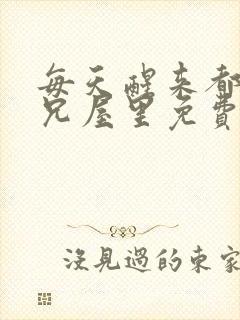 每天醒来都
兄屋里免費
没見過的東家